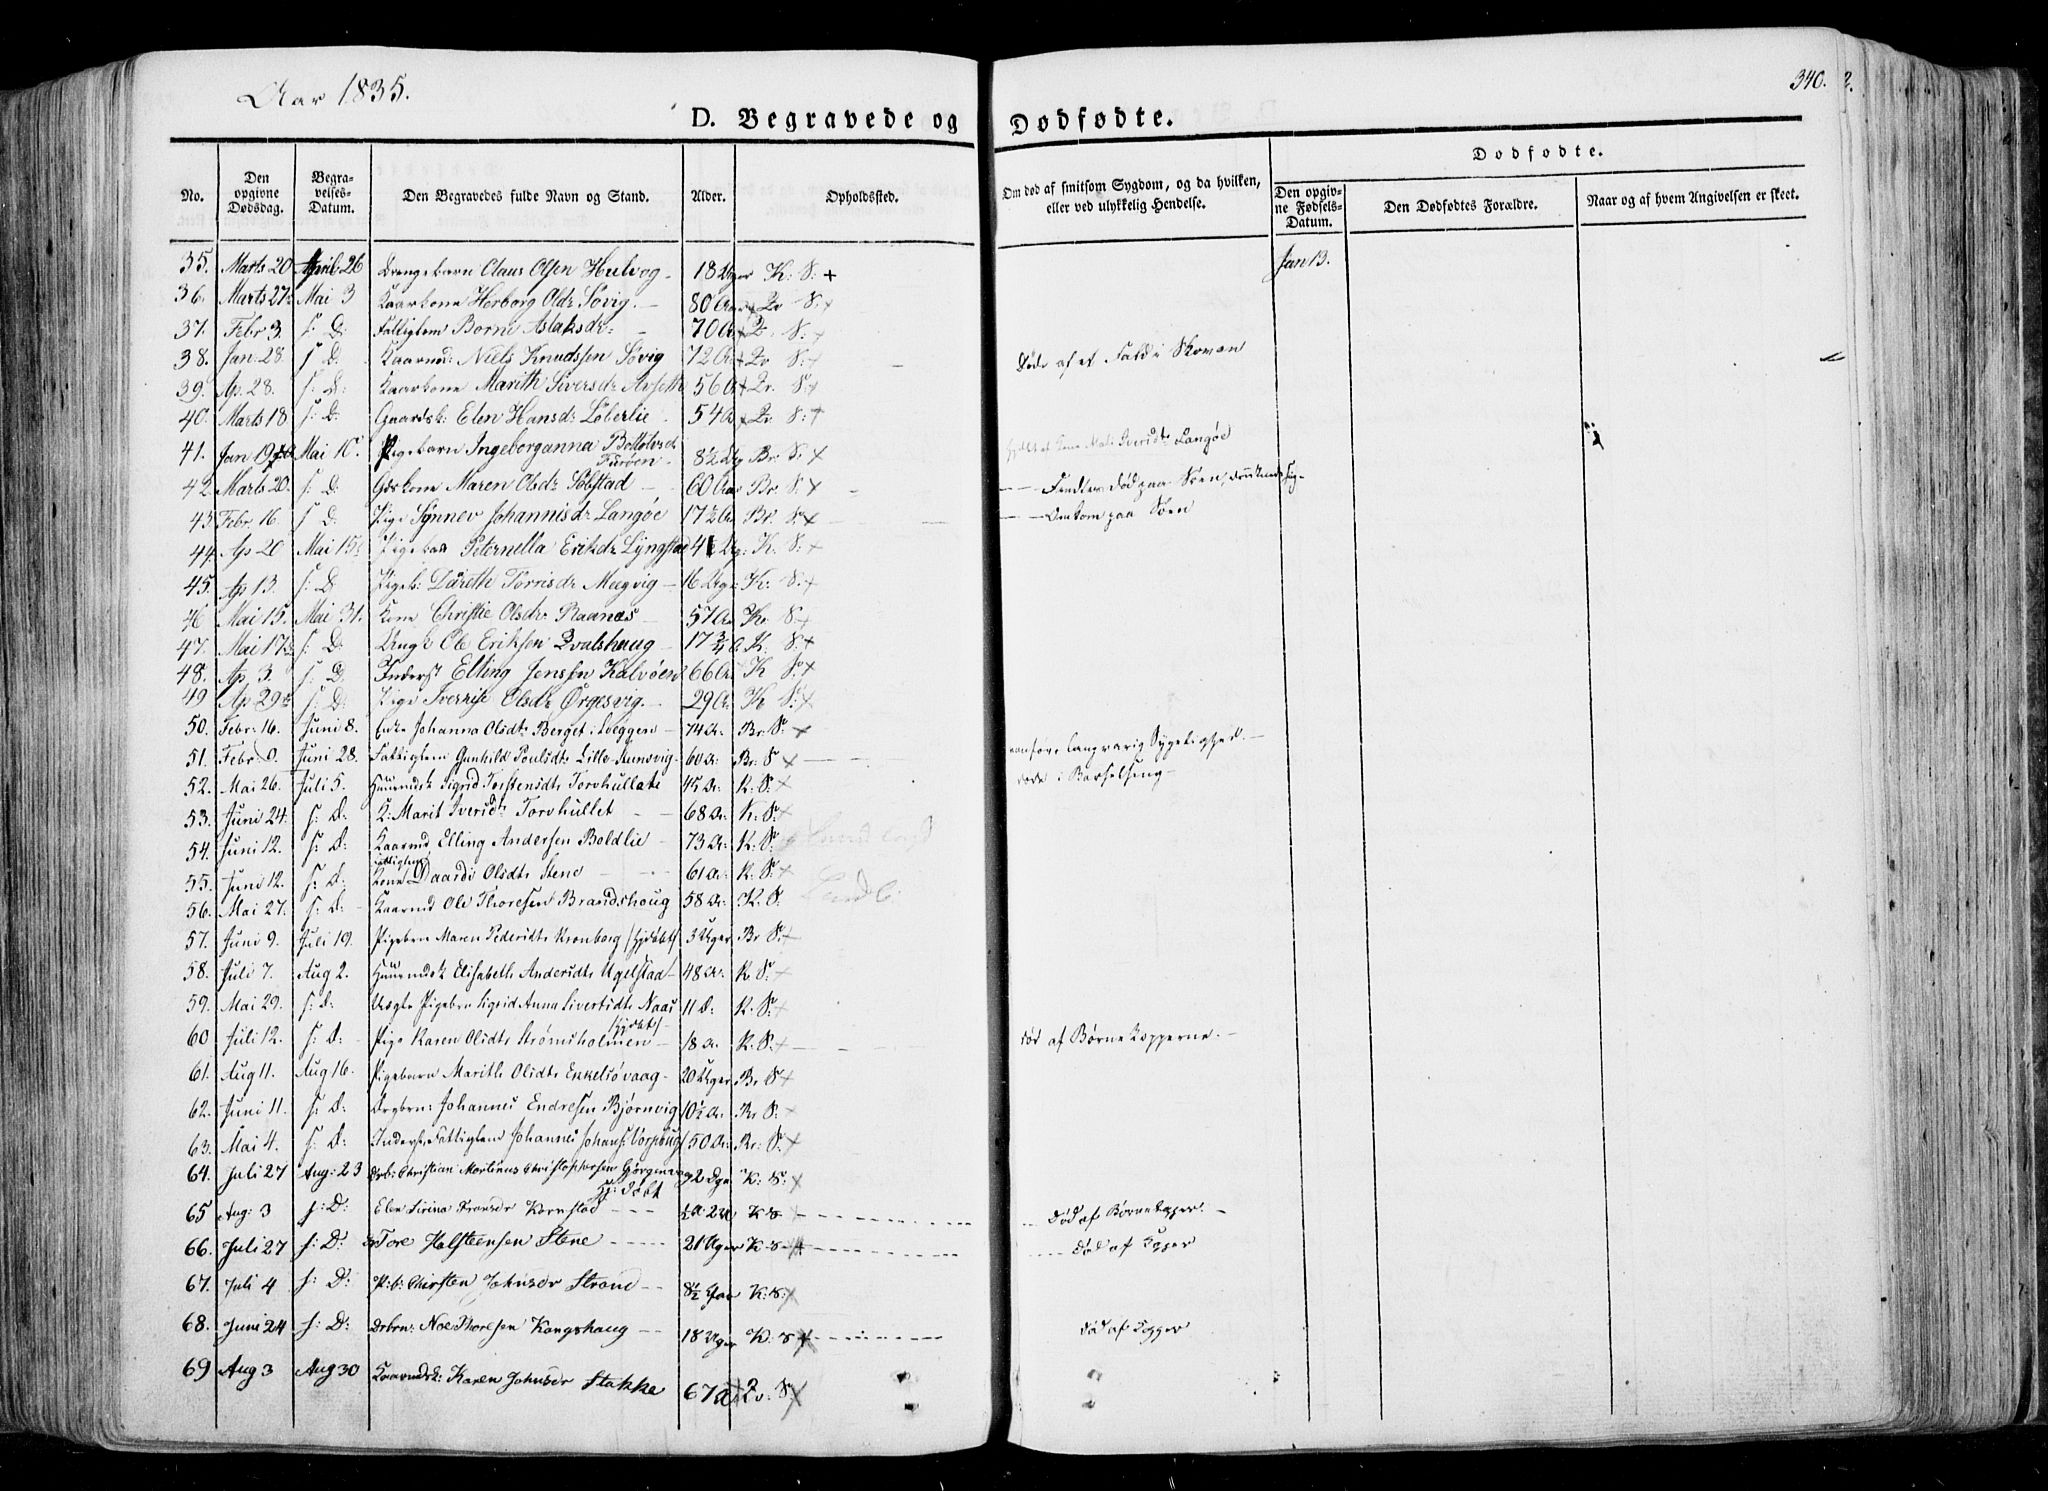 Aar 1835.
340.
2.
D. Begravede og Dødfødte.
No. Den opgivne Dødsdag. Begravelses-Datum. Den Begravedes fulde Navn og Stand. Alder. Opholdssted. Om død af smitsom Sygdom, og da hvilken, eller ved ulykkelig Hendelse. Dødfødte. Den opgivne Fødsels-Datum. Den Dødfødtes Forældre. Naar og af hvem Angivelsen er skeet.
35. Marts 20 April 26 Drengebarn Claus Olsen Hulvog - 18 Uger K: S: + Jan 13.
36. Marts 27 Mai 3 Kaarkone Herborg Olsdr Søvig. - 80 Aar Qv S: +
37. Febr 3. s: D: Fattiglem Borni Aslaksdr: - 70 A Qv S: +
38. Jan: 28 s D: Kaarmd: Niels Knudssen Søvig 72 A Qv S: + Døde af et Fald i Skoven
39. Ap. 28. s: D: Kaarkone Marith Siversdr Arseth 56 A Qv. S: +
40. Marts 18 s: D: Gaardsk: Elen Hansdr Løberlie 54 A Qv. S: +
41. Jan 19 Mai 10. Pigebarn Ingeborganna Bottolvsdr Furøen - 8½ Br: S: + Langøe
42. Marts 20. s: D: Gdskone Maren Olsdr Sølstad - 60 Aar Br. S: + død paa Søen,
43. Febr. 16. s D: Pige Synnev Johannisdr Langøe 17½ A Br. S: + Omkom paa Søen
44. Ap 20 Mai 15 Pigeba Peternella Eriksdr Lyngstad K. S: +
45. Ap 13. s: D Pigeb: Dorethe Torrisdr Meegvig - 16 Uger K: S: +
46 Mai 15. Mai 31. Kone Christie Olsdr Raanæs 57 A K. S. +
47. Mai 17 s: D: Ungk Ole Eriksen Qvalshaug - 17¾ A K. S: +
48. Ap. 3. s D: Inderst Elling Jenssen Kalvøen 66 A K S: +
49 Ap 29 s: D: Pige Iverrise Olsdr Ørgesvig. - 29 A K S: +
50. Febr: 16. Juni 8. Enke Johanna Olsdtr Berget i Sveggen - 74 A: Br: S: +
51. Febr 9. Juni 28. Fattiglem Gunhild Poulsdtr Lille-Kunsvig - 60 A: Br: S + langvarig Sygelighed. -
52. Mai 26. Juli 5. Huusmdsk Sigrid Torstensdtr Torvhullete 45 A: K: S: + døde i Barselseng -
53. Juni 24. s: D: K: Marit Iversdtr Torvhullet - - 68 A: K: S: +
54. Juni 12. s: D: Kaarmd Elling Andersen Boldlie - 73 A: K: S:
55. Juni 12. s: D. fattiglem Kone Daardi Olsdtr Stene - 61 A: K: S: +
56. Mai 27. s: D: Kaarmd Ole Thoresen Brandshoug 58 A: K: S:
57. Juni 9. Juli 19. Pigebrn Maren Pedersdtr Kronborg /hjdøbt/ 3 Uger Br S: +
58. Juli 7. Aug 2. Huusmdsk Elisabeth Andersdtr Ugelstad 48 A: K: S: +
59. Mai 29. s: d: Uægte Pigebrn Sigrid Anna Sivertsdtr Naas /hjdøbt/ 11 D: K. S: +
60 Juli 12. s: D: Pige Karen Olsdtr Strømsholmen - 18 A: K. S: + død af Børne Kopperne. -
61. Aug 11. Aug 16. Pigebarn Marith Olsdtr Enkelsøvaag - 20 Uger Br S +
62. Juni 11. s: D: Drgbrn: Johannes Endresen Bjørnvig 10½ A: Br S: +
63. Mai 4. s: D: Inderst. Fattiglem Johannes Johans: 50 A: Br: S: +
64. Juli 27 Aug: 23 Drb: Christian Martinus Christophersen Gørgen Hj: døbt 2 Dge K: S: +
65 Aug: 3 s: D: Elen Sirina Fransdr Kornstad K S - Død af Børnekopper. -
66. Juli 27 s: D: Tore Halsteensen Stene 21 Uger K S + død af Kopper
67. Juli 4 s: D: P:b: Kirsten Johnsdr Strand 8½ Aar K: S: +
68. Juni 24 s: D: Drbrn: Noe Thoresen Kongshaug - 18 Uger K: S + død af Kopper
69 Aug 3 Aug 30 Kaarmdsk: Karen Johnsdr Stokke 67 A Qv: S: +